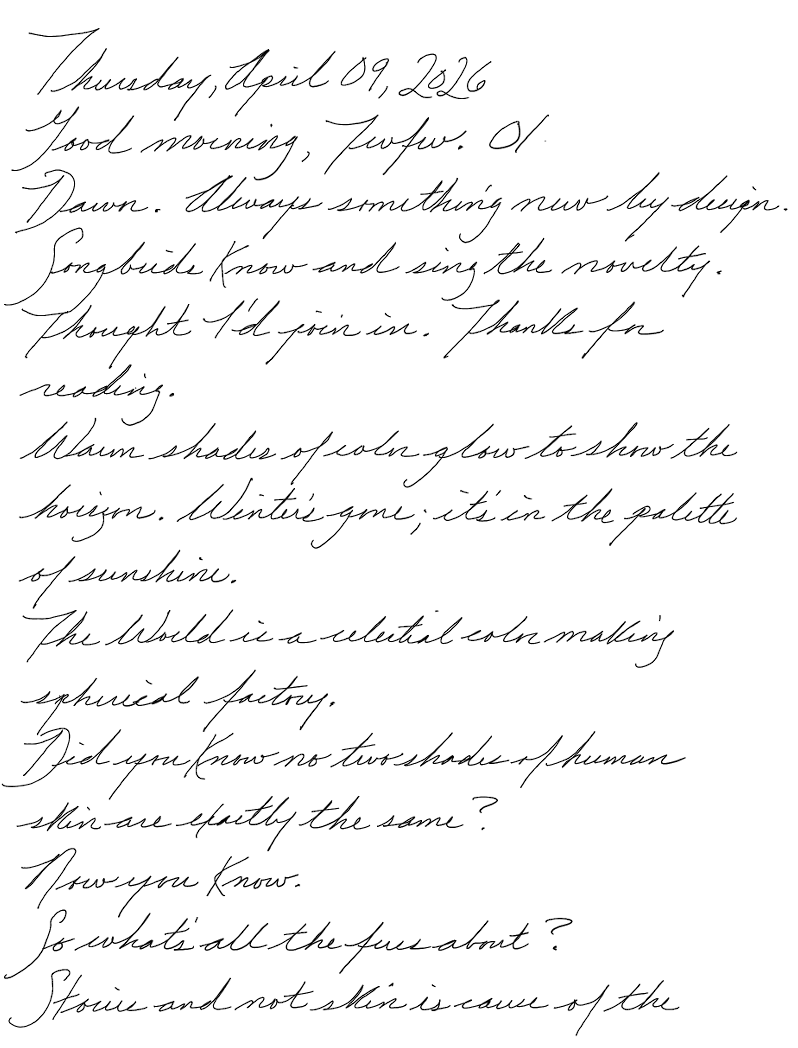 Thursday, April 09, 2026
Good morning, Twfw. 01
Dawn. Always something new by design.
Songbirds know and sing the novelty.
Thought I'd join in. Thanks for
reading.
Warm shades of color glow to show the
horizon. Winter's gone; it's in the palette
of sunshine.
The World is a celestial color making
spherical factory.
Did you know no two shades of human
skin are exactly the same?
Now you know.
So what's all the fuss about?
Stories and not skin is cause of the